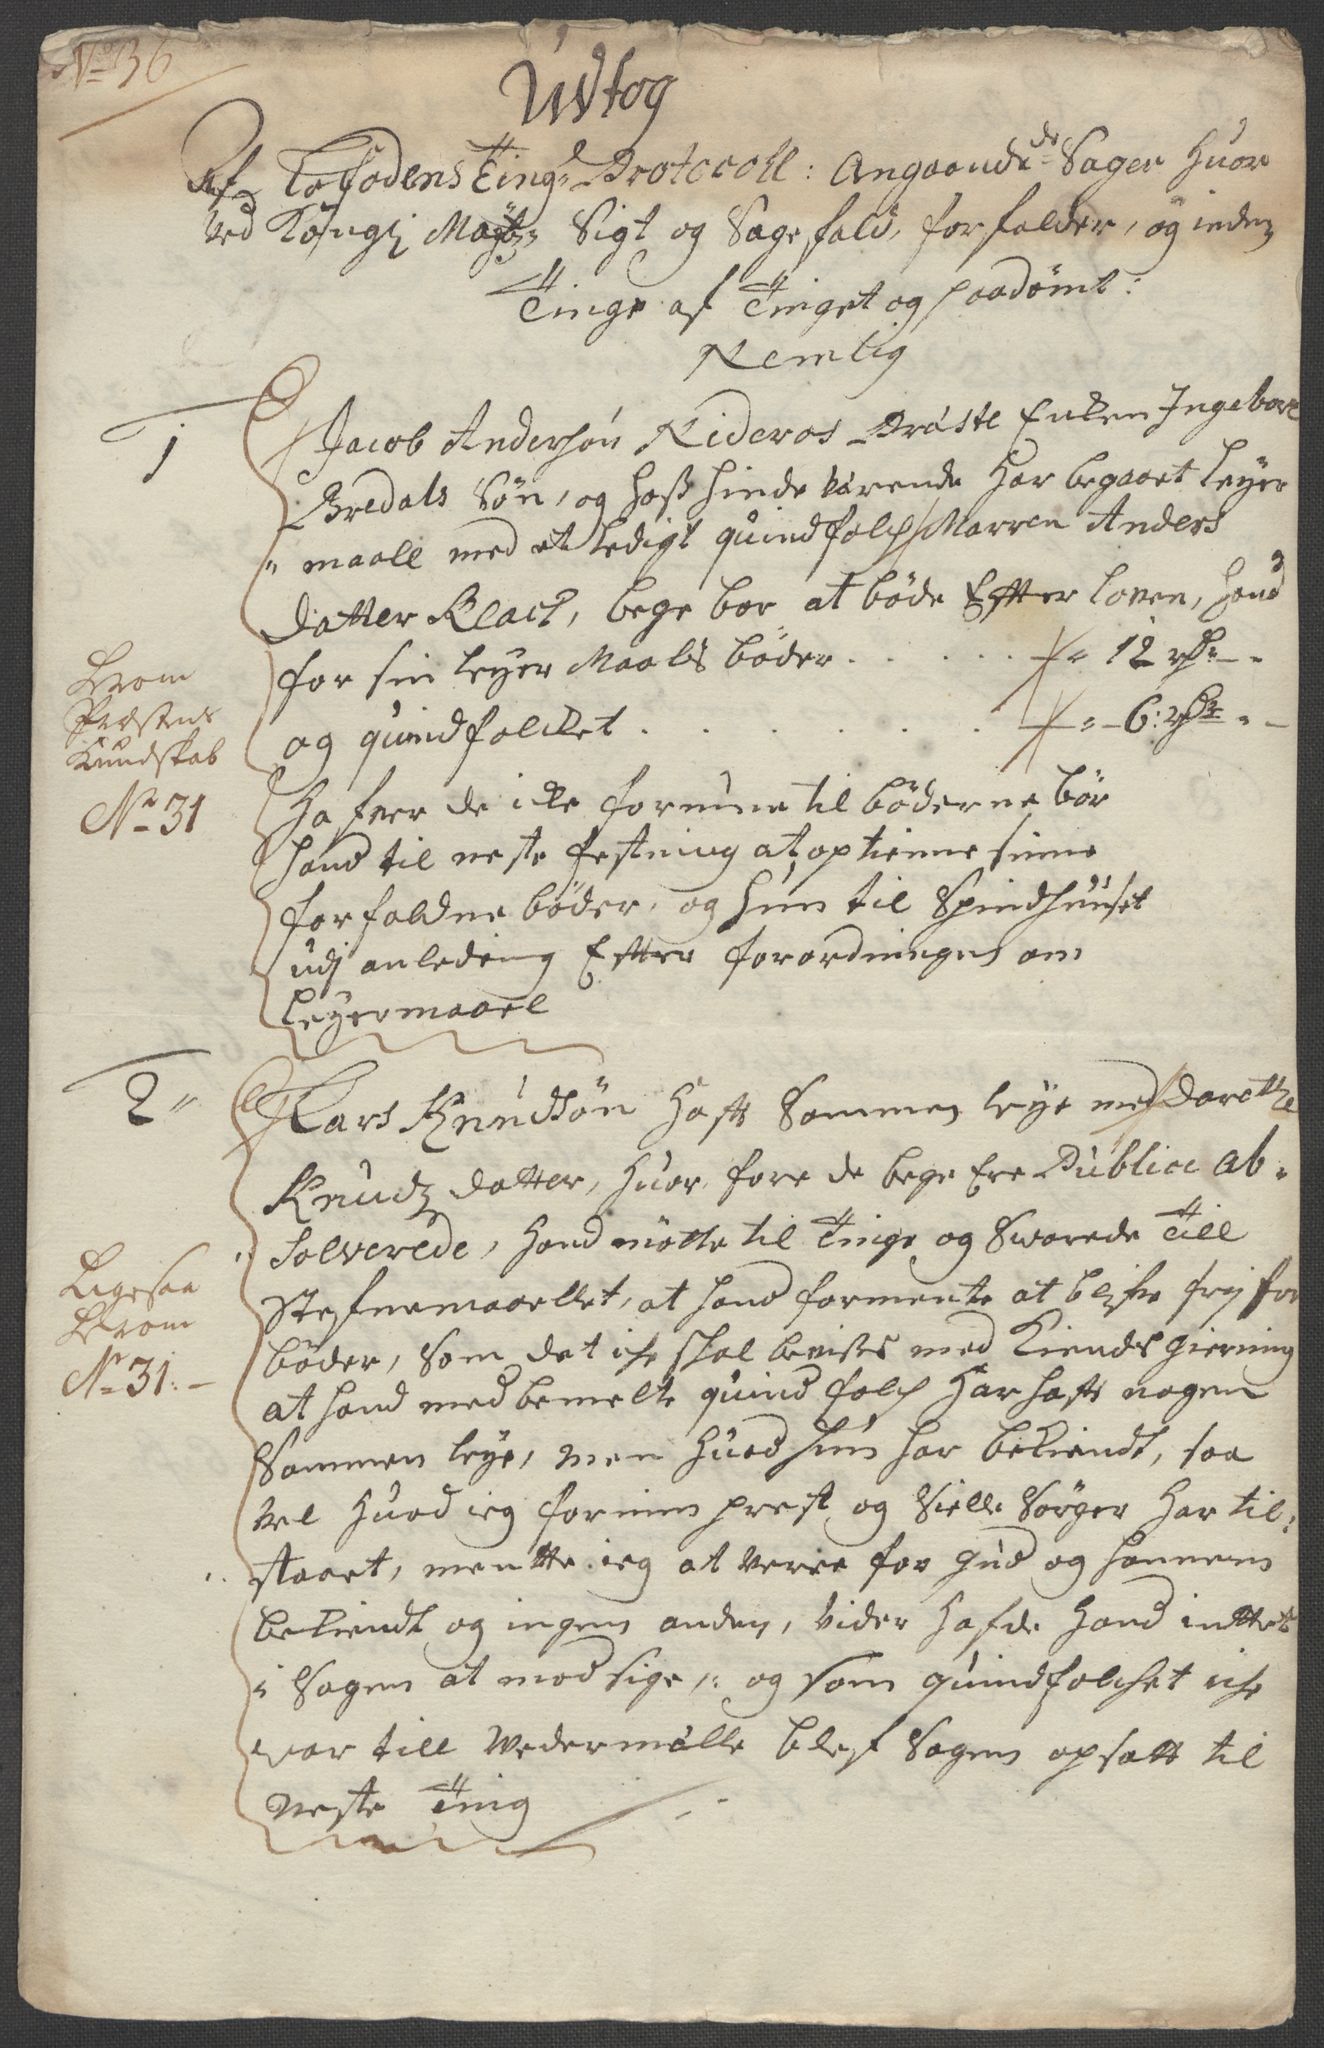 No 36
Udtog
Af Lofodens Tings Protocoll: Angaaende de Sager huor
ved Kongl Maytz Sigt og Sagefald, forfalder, og inden
Tinge af Tinget og paadömt:
Nemlig
1
Jacob Andersön Nideros Dröste Enken Ingebor
Bredals Sön, og hoss hinde værende har begaaet leyer
maall med et ledigt quindfolch Marren Anders
datter Klack, bege bör at böde Efter loven, hand
for sin leyer Maals böder . . . . . 12 rdr
og quindfolcket . . . . . . 6: rdr
Herom
Præstens
Kundskab
No 31
Hafver de icke formue til böderne bör
hand til neste festning at optienne sinne
forfaldne böder, og hun til Spindhuuset
udj anledning Efter forordningen om
Leyermaael
2
Lars Knudsön hafft Sammen leye med Dorethe
Knudz datter, huor fore de bege Ere Publice ab-
solverede, hand mötte til Tinge og Swarede Till
Stefnemaallet, at hand formente at blifve frj for
böder, som det iche skal bevises med Kiendes gierning
at hand med bemelte quindfolch har hafft nogen
Sammen leye, men huad hun har bekiendt, saa
vel huad ieg for min prest og Sielle Sörger har til-
staaet, mentte ieg at verre for gud og hannem
bekiendt og ingen anden, vider hafde hand inttet
i Sagen at modsige, og som quindfolchet iche
var till vedermelle blef Sagen opsatt til
neste Ting
Ligesaa
Herom
No 31: